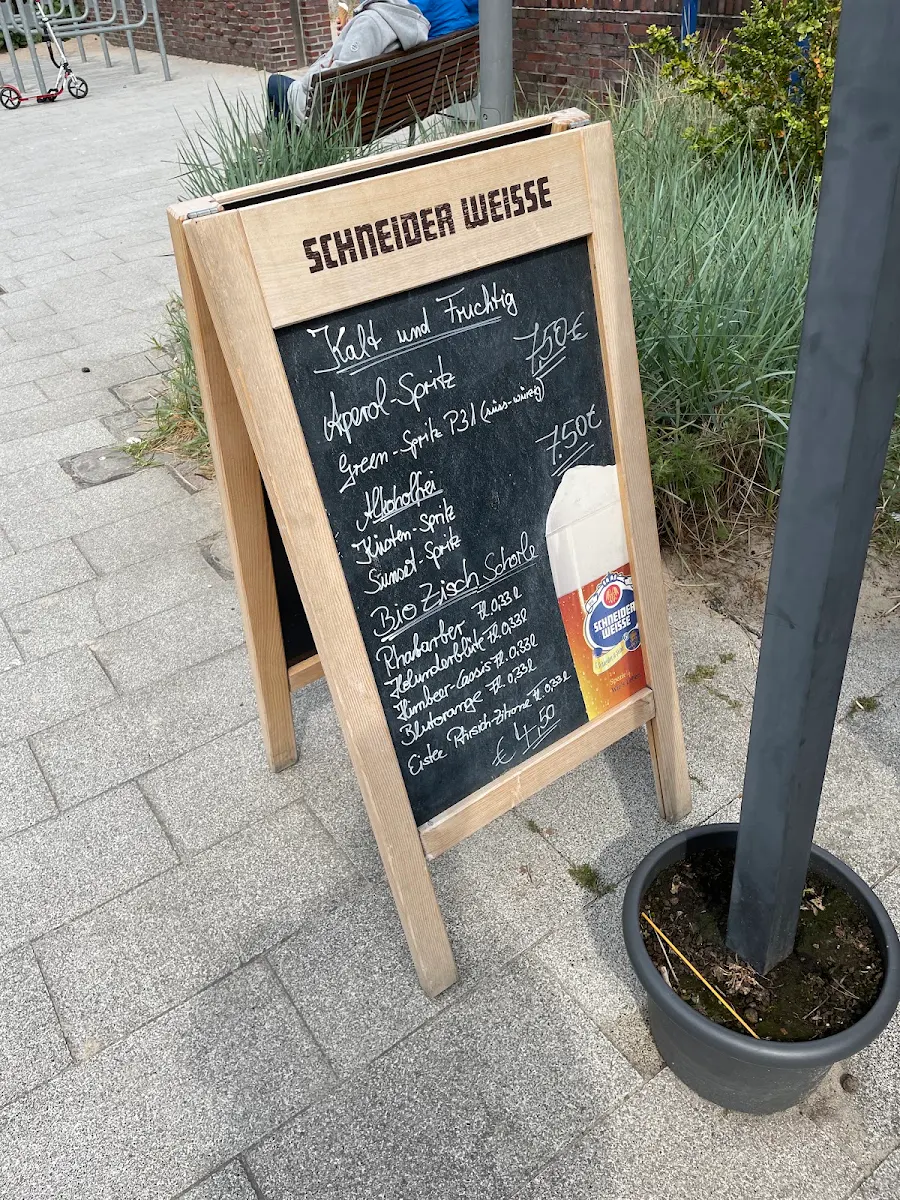 SCHNEIDER WEISSE
Kalt und Fruchtig
Aperol-Spritz 7,50€
Green-Spritz P31 (süss-würzig)
Alkoholfrei 7.50€
Küsten-Spritz
Sunset-Spritz
Bio Zisch Schorle
Rhabarber Fl. 0,33l
Holunderblüte Fl. 0,33l
Himbeer-Cassis Fl. 0,33l
Blutorange Fl. 0,33l
Eistee Pfirsich-Zitrone Fl. 0,33l
€ 4,50
SCHNEIDER
WEISSE